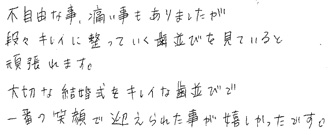 不自由な事、痛い事もありましたが
段々キレイに整っていく歯並びを見ていると
頑張れます。
大切な結婚式をキレイな歯並びで
一番の笑顔で迎えられた事が嬉しかったです。